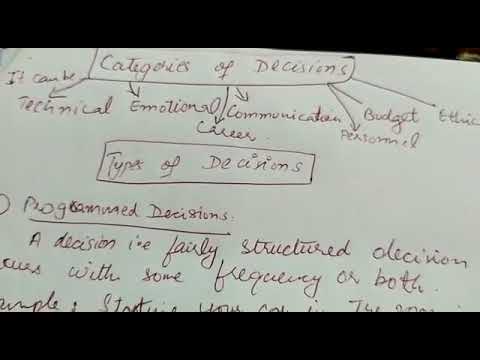 Categories of Decisions
It can be
Technical Emotional Communication Budget Ethic
Career Personnel
Types of Decisions
Programmed Decisions:
A decision i.e fairly structured decision
with some frequency or both.
Starting your car in The